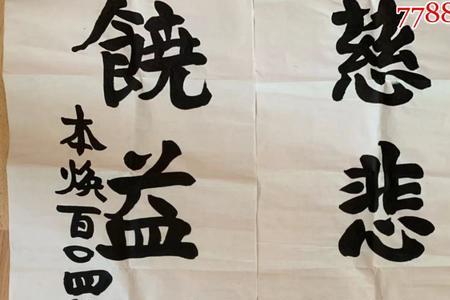 慈悲
饒益
本焕百〇四
7788